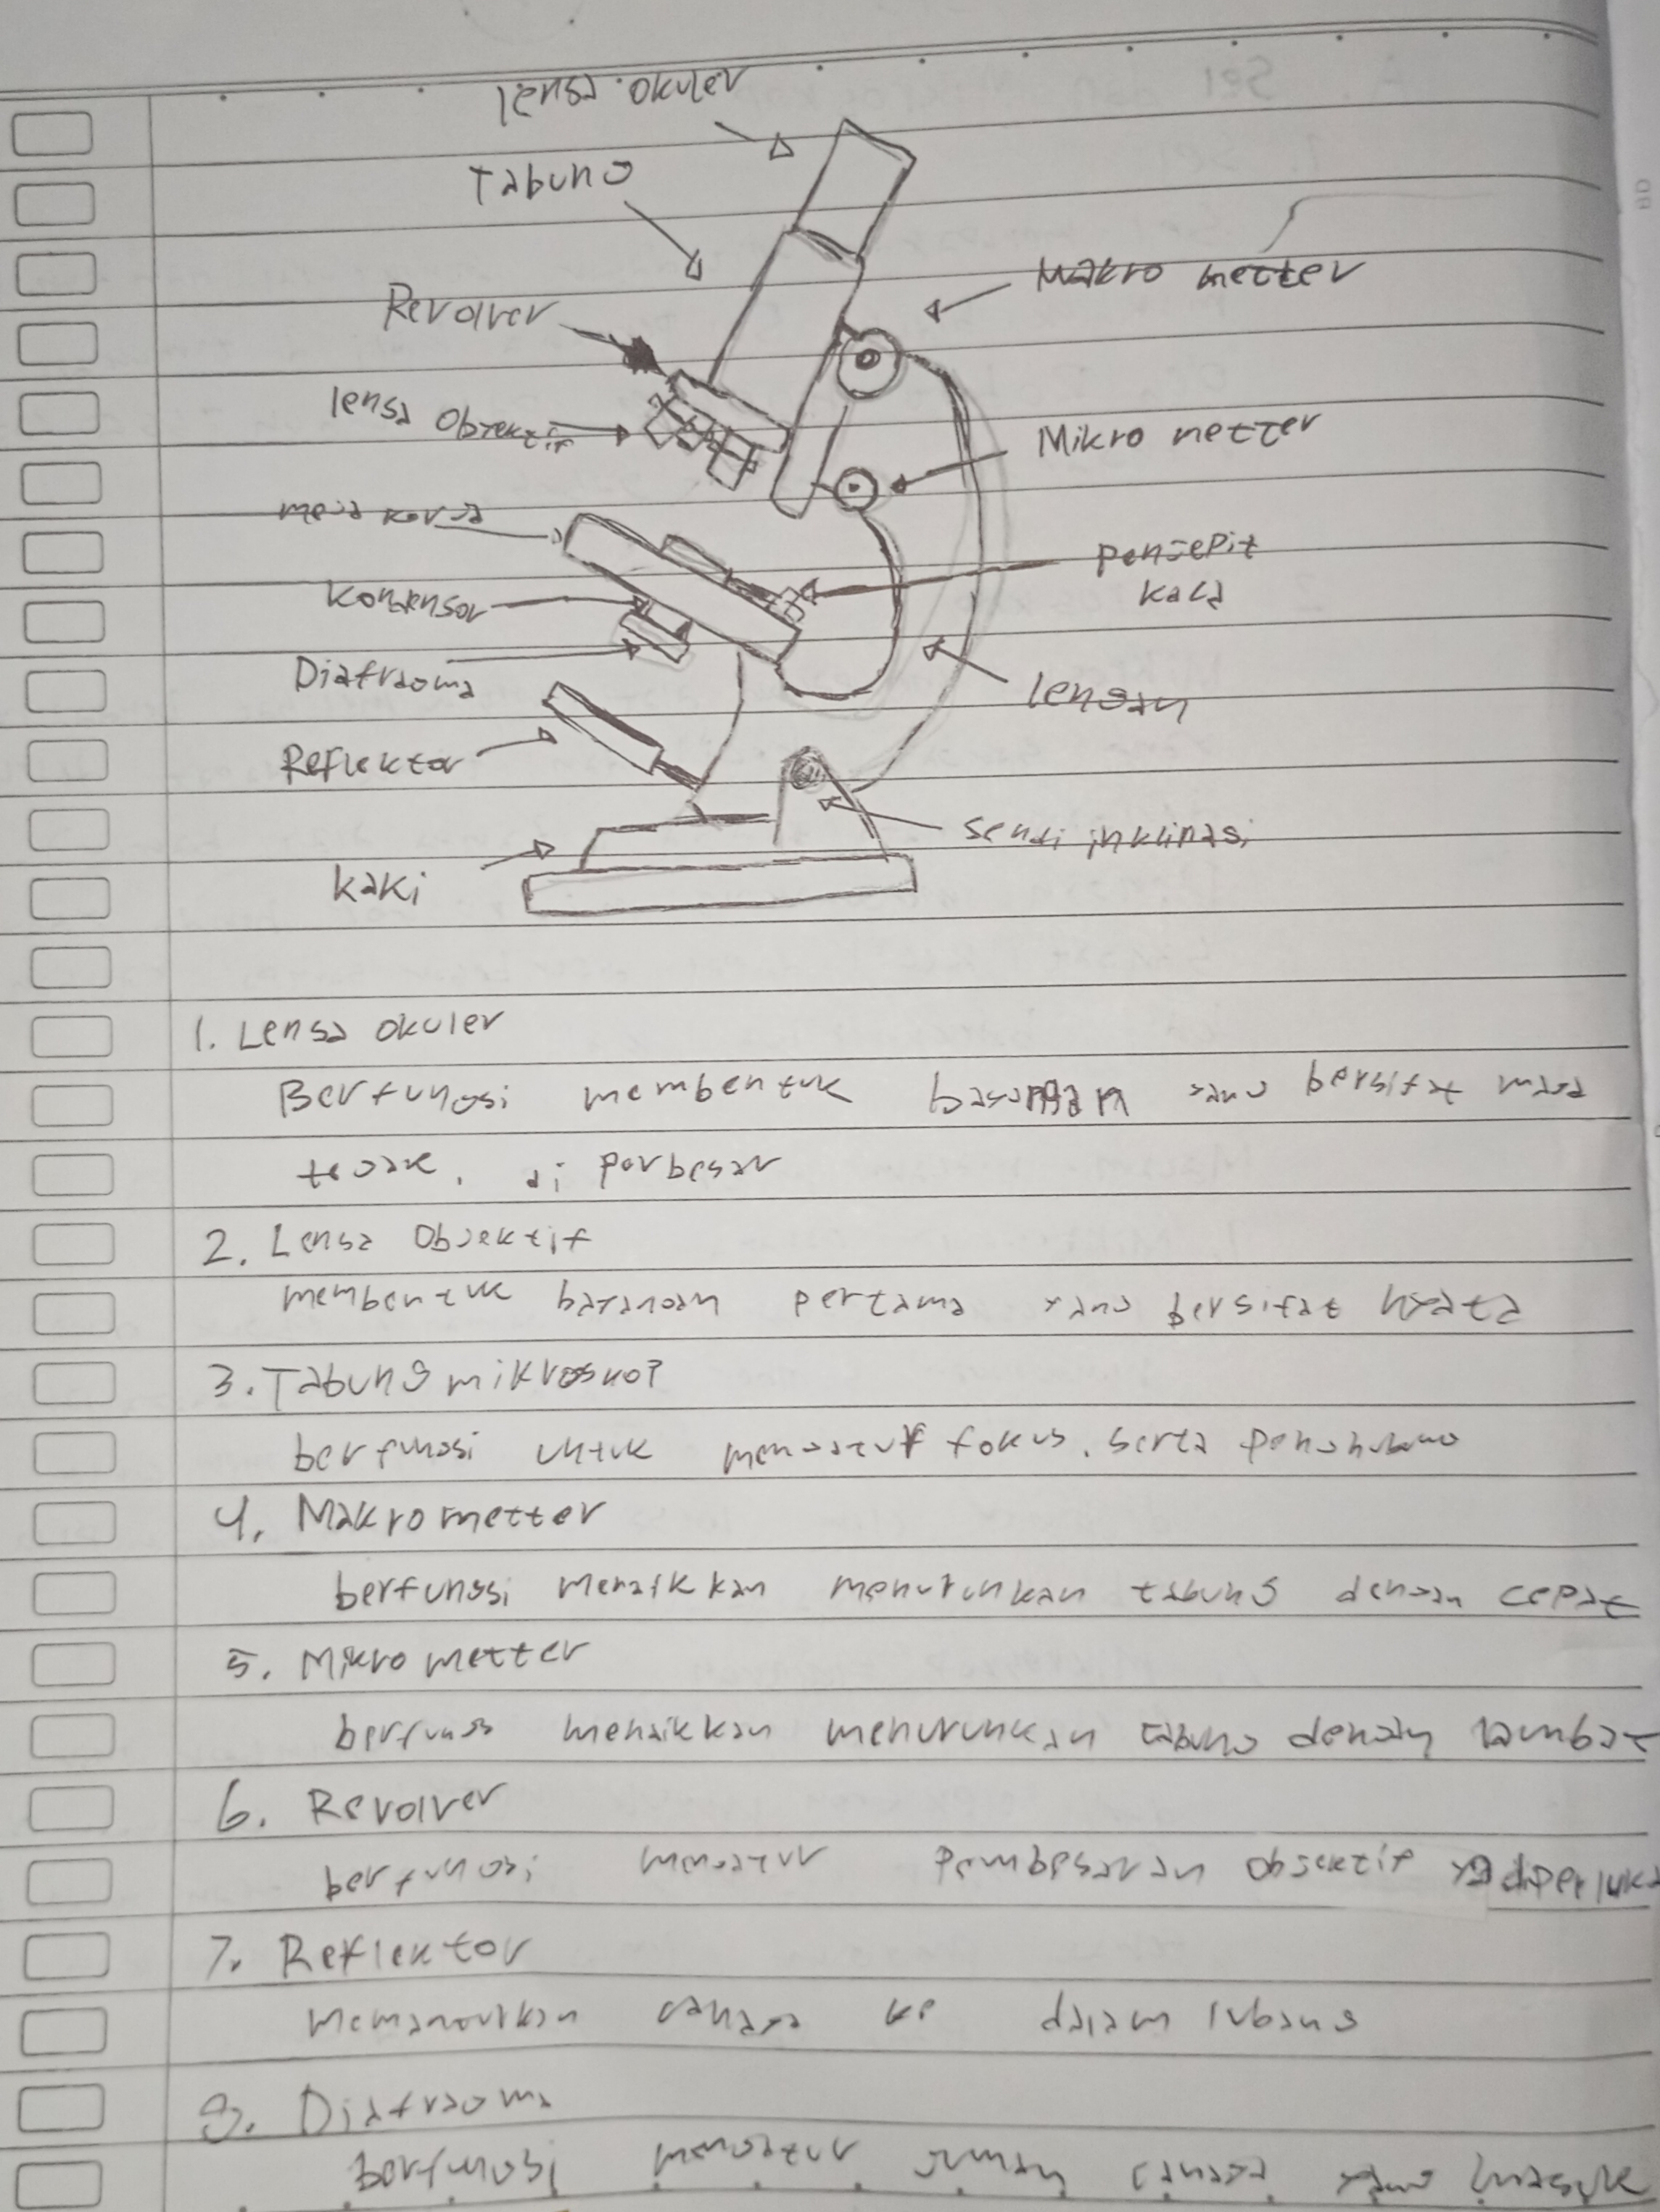 lensa okuler
Tabung
Revolver
Makro metter
lensa Objektif
Mikro metter
meja kerja
penjepit
kaca
Kondensor
Diafragma
lengan
Reflektor
sendi inklinasi
kaki
1. Lensa okuler
Berfungsi membentuk bayangan yang bersifat maya
tegak, di perbesar
2. Lensa Objektif
membentuk bayangan pertama yang bersifat nyata
3. Tabung mikroskop
berfungsi untuk mengatur fokus, serta penghubung
4. Makro metter
berfungsi menaikkan menurunkan tabung dengan cepat
5. Mikro metter
berfungsi menaikkan menurunkan tabung dengan lambat
6. Revolver
berfungsi mengatur pembesaran objektif yg diperluka
7. Reflektor
Memantulkan cahaya ke dalam lubang
8. Diafragma
berfungsi mengatur jumlah cahaya yang masuk